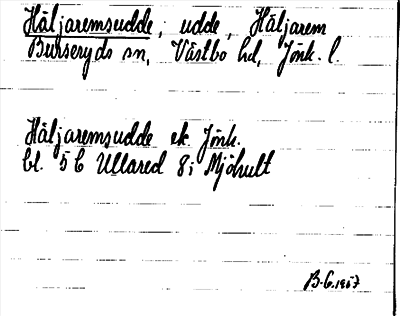 Häljaremsudde, udde, Häljarem
Burseryds sn, Västbo hd, Jönk. l.
Häljaremsudde ek. Jönk.
bl. 5 C Ullared 8 i Mjöhult
B-G. 1957